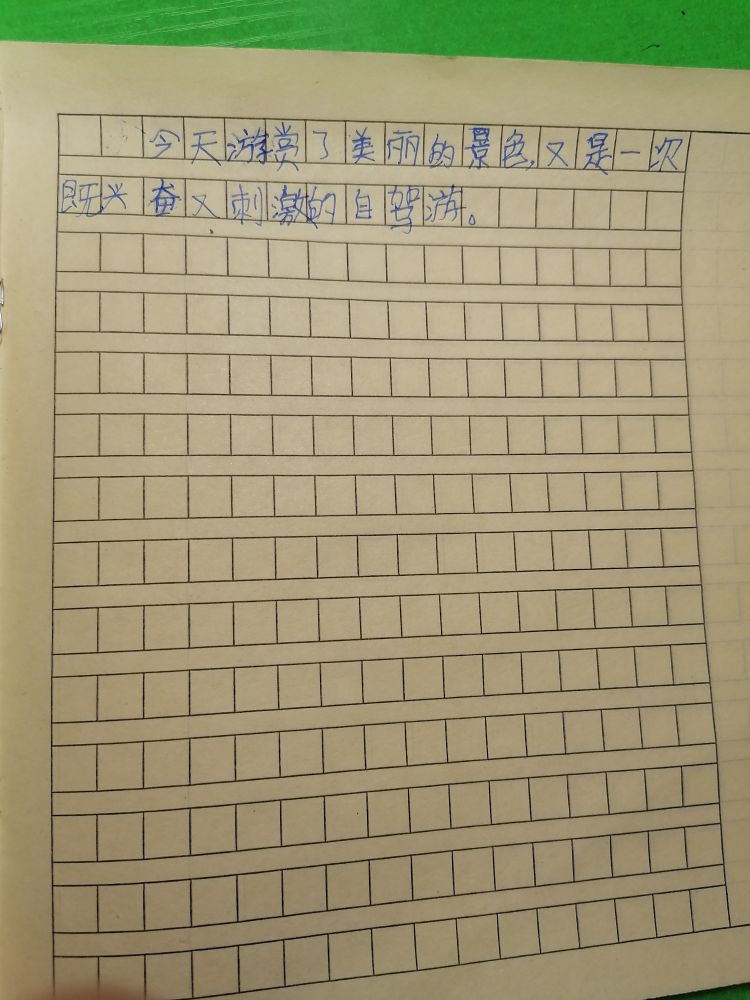 今天游赏了美丽的景色,又是一次
既兴奋又刺激的自驾游。